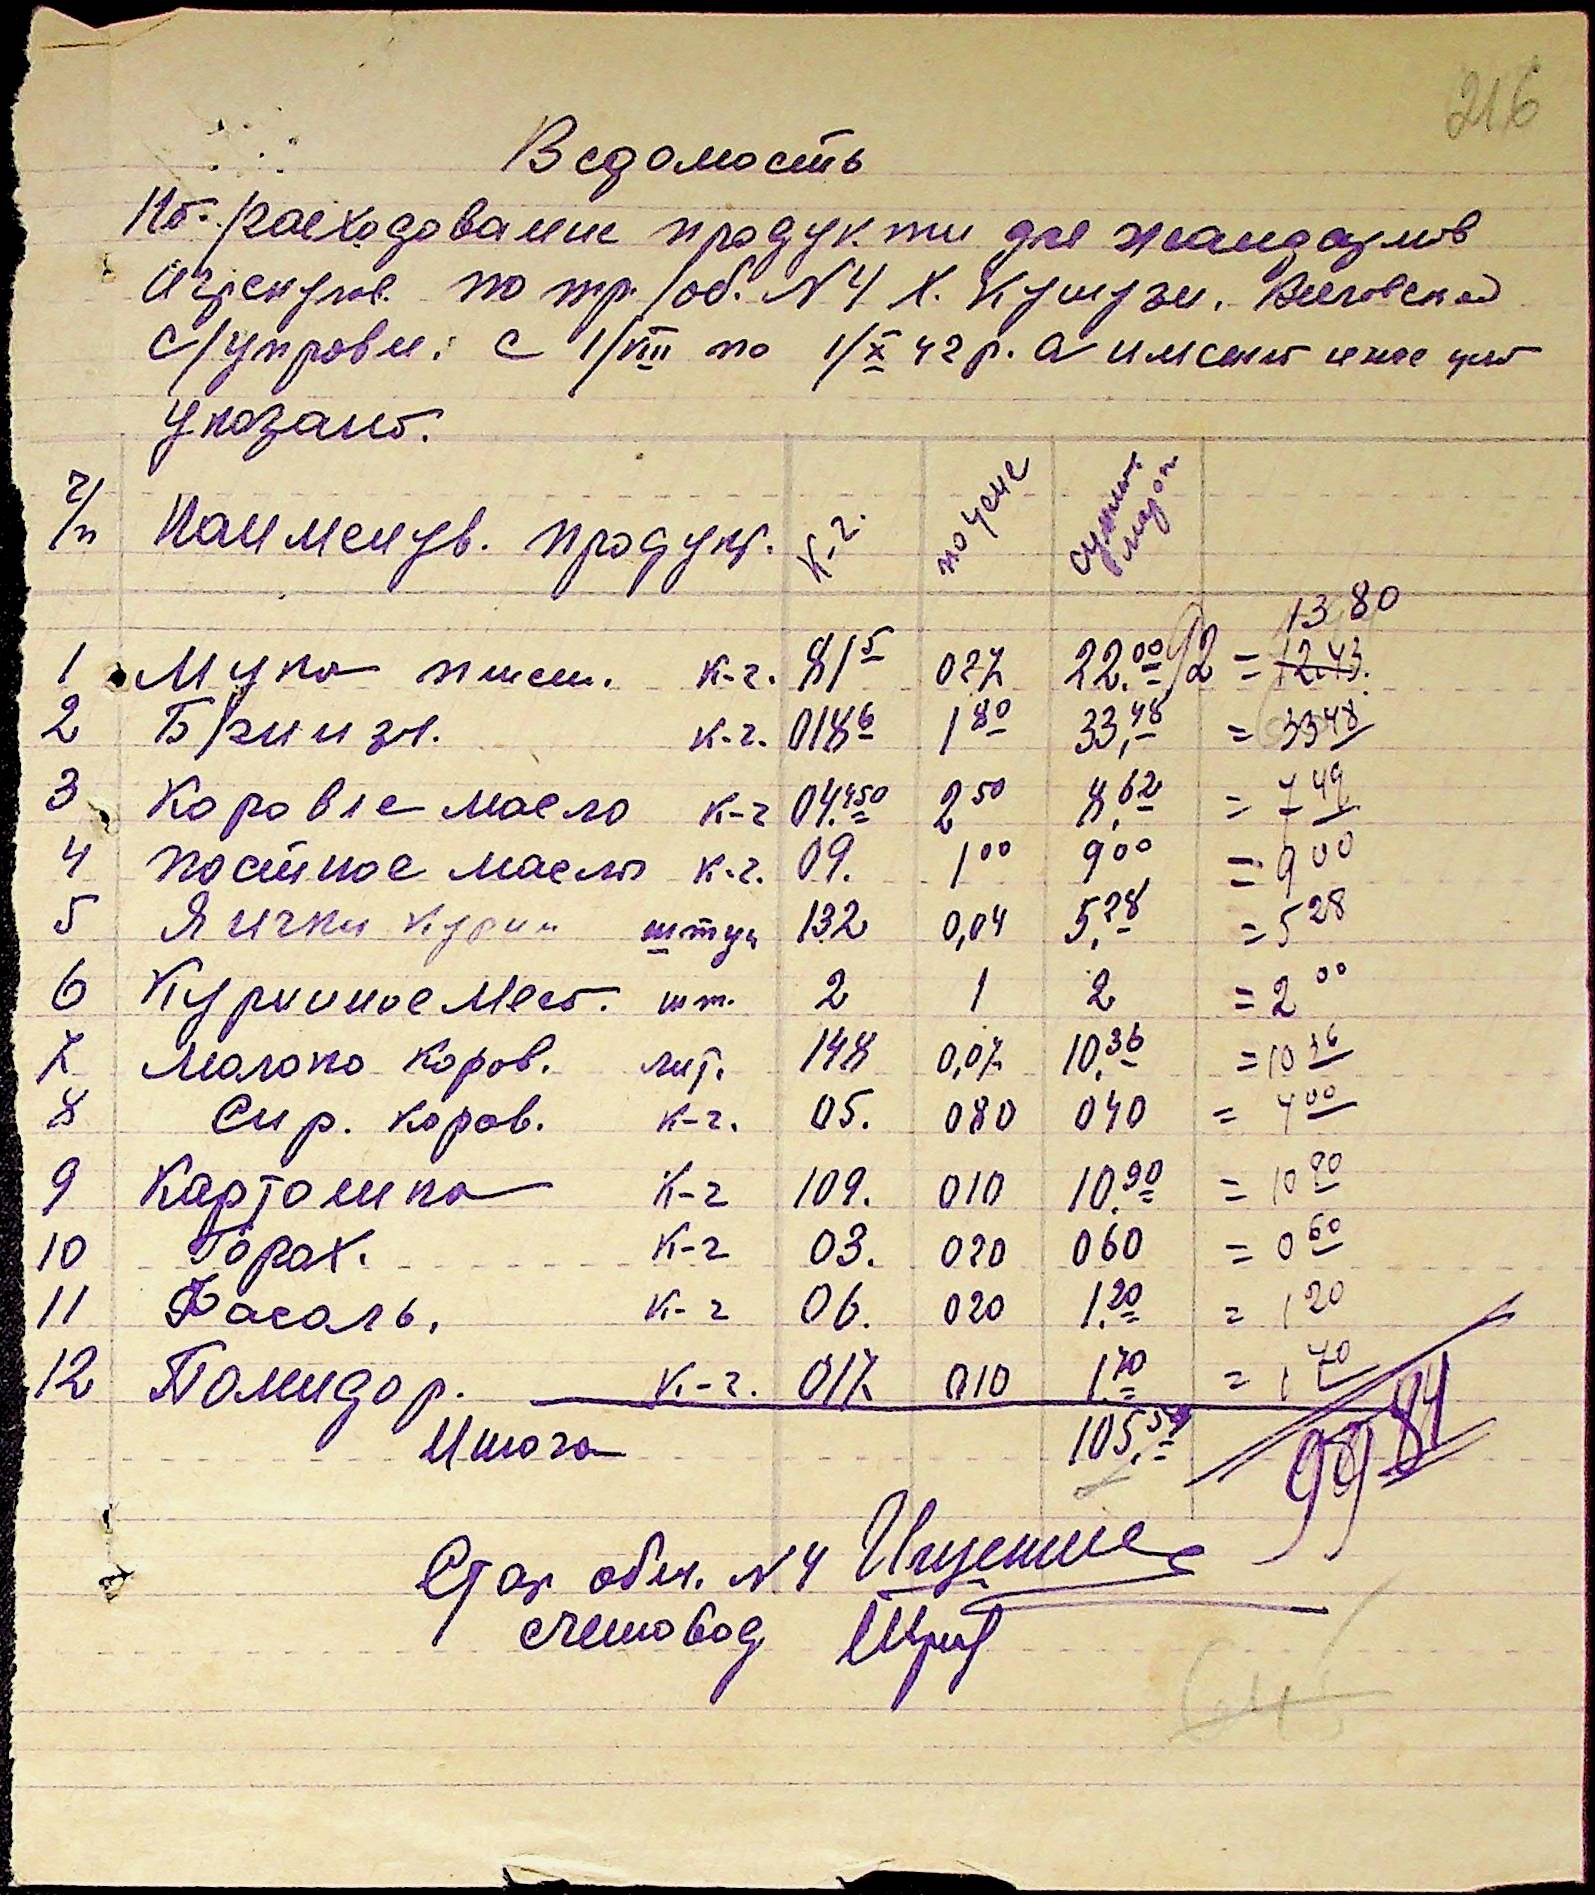 216
Ведомость
На расходование продукти для жандармов
по тр/об. N4 х.
с/управи. с 1/VIII по 1/X 42 р. а имено ниже
указано.
ч/п Наименув. продукт. к-г. по цене сумма марок
13 80
1 Мука пшен. к-г. 81 5 027 22.00 92 = 12.43.
2 Бринзи. к-г. 018 6 1 80 33,48 = 33 48
3 Коровие масло к-г 04.450 2 50 8,62 = 7 49
4 постное масло к-г. 09. 1 00 9 00 = 9 00
5 Яички курин штук 132 0,04 5,28 = 5 28
6 Куриное Мясо. шт. 2 1 2 = 2 00
7 Молоко коров. лит. 148 0,07 10,36 = 10 36
8 Сир. коров. к-г. 05. 080 040 = 4 00
9 Картошка К-г 109. 010 10.90 = 10 90
10 Горох. К-г 03. 020 060 = 0 60
11 Фасоль, К-г 06. 020 1.20 = 1 20
12 Помидор. К-г. 017 010 1.70 = 1 70
Итого 105.54 99 81
Стар общ. N4
счетовод